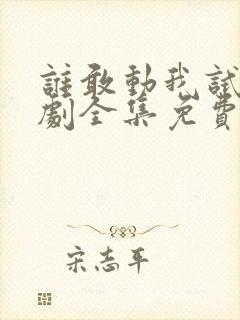 誰敢動我試
劇全集免費
宋志平